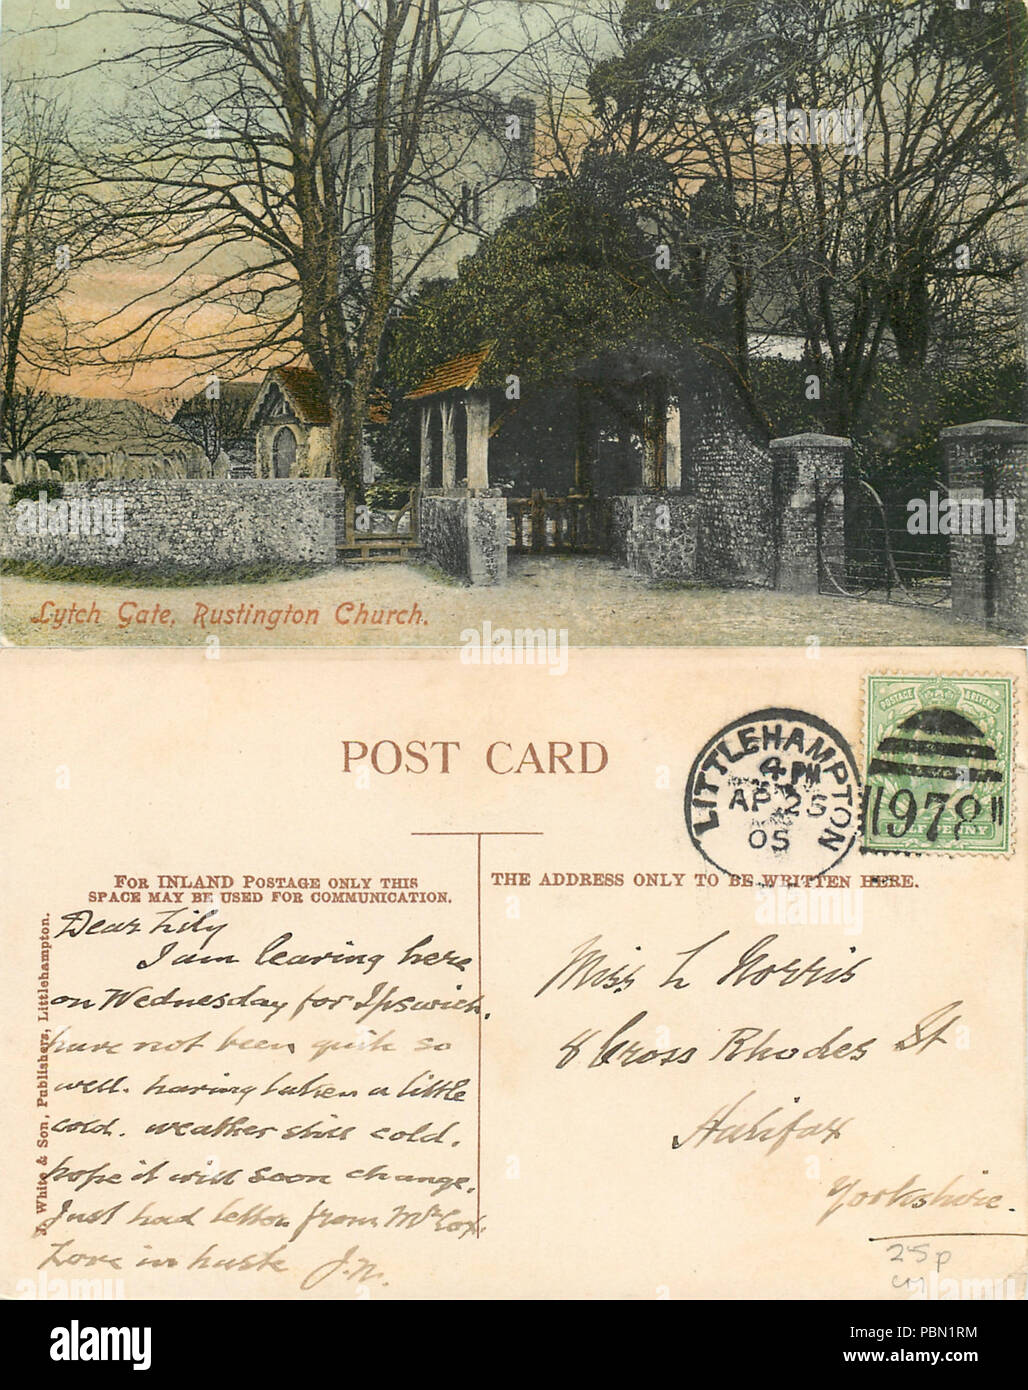 Lytch Gate, Rustington Church.
POST CARD
LITTLEHAMPTON
4 PM
AP 25
05
POSTAGE & REVENUE
978
HALFPENNY
FOR INLAND POSTAGE ONLY THIS
SPACE MAY BE USED FOR COMMUNICATION.
THE ADDRESS ONLY TO BE WRITTEN HERE.
J. White & Son, Publishers, Littlehampton.
Dear Lily
I am leaving here
on Wednesday for Ipswich.
have not been quite so
well. having taken a little
cold. weather still cold.
hope it will soon change.
Just had letter from Mr Cox.
Love in haste J.N.
Miss L Norris
8 Cross Rhodes St
Halifax
Yorkshire.
25p
alamy
alamy
alamy
Image ID: PBN1RM
www.alamy.com